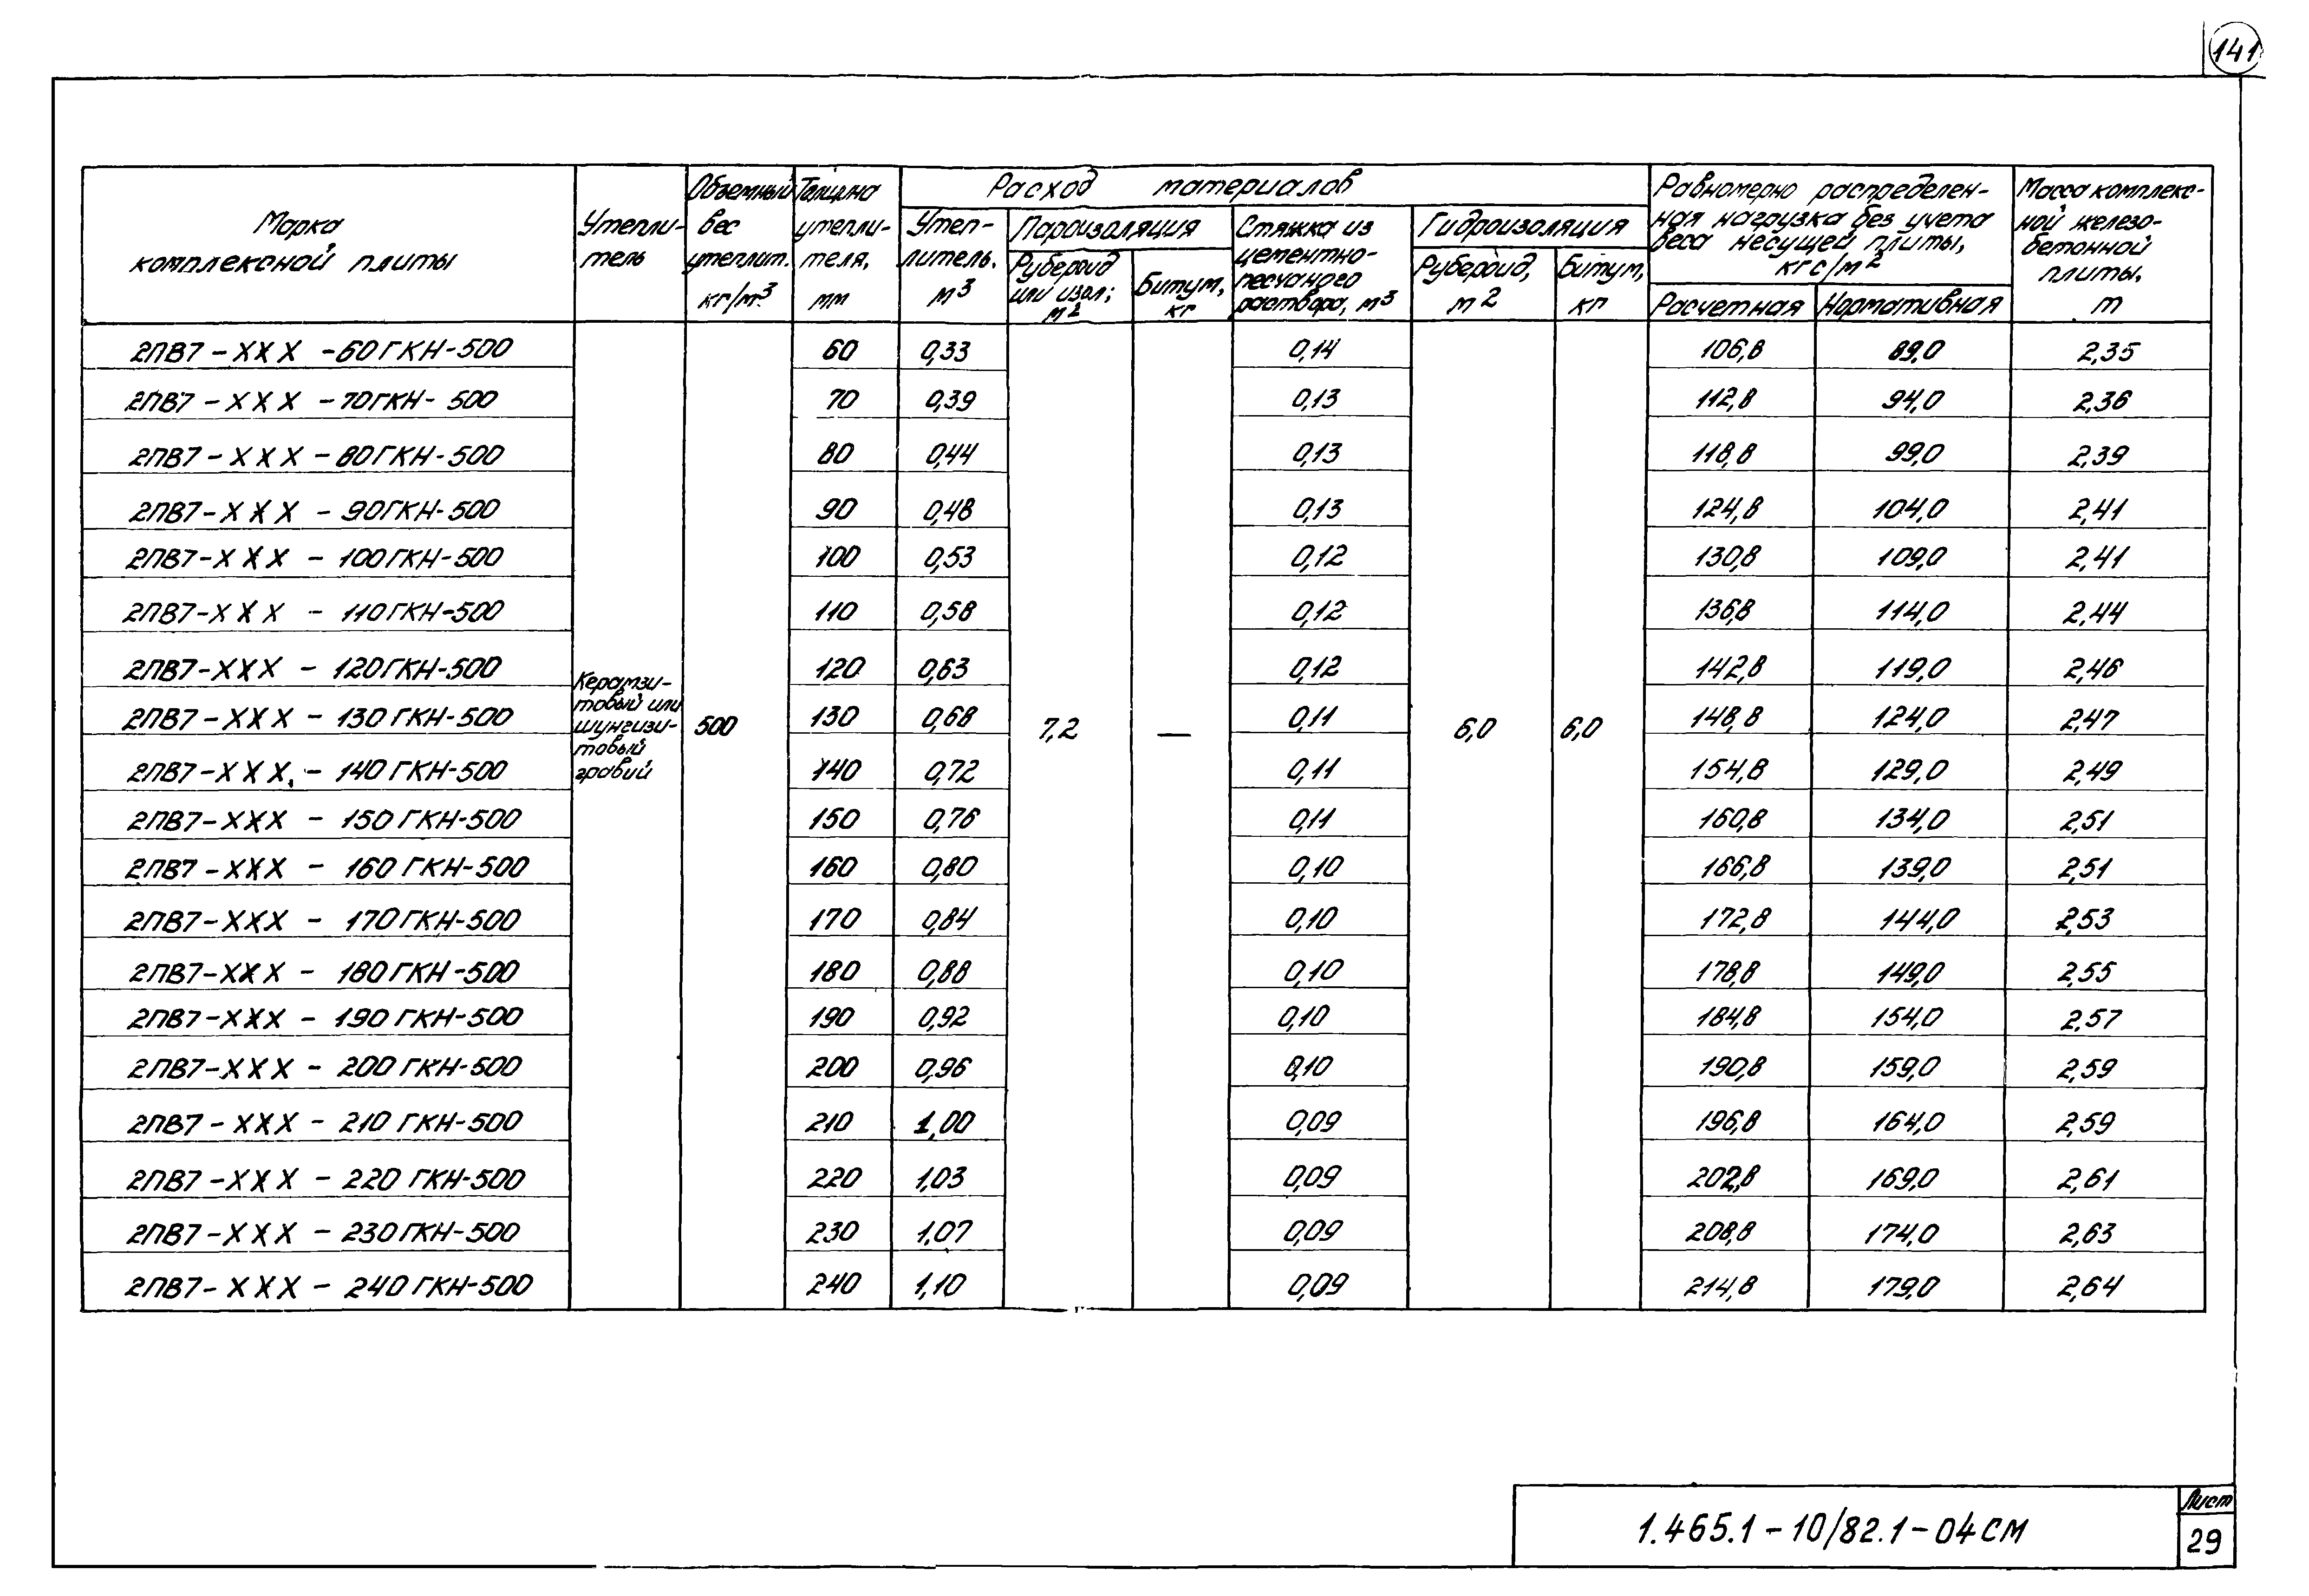 141
Марка
комплексной плиты
Утепли-
тель
Объемный
вес
утеплит.
кг/м³
Толщина
утепли-
теля,
мм
Расход материалов
Утеп-
литель,
м³
Пароизоляция
Рубероид
или изол;
м²
Битум,
кг
Стяжка из
цементно-
песчаного
раствора, м³
Гидроизоляция
Рубероид,
м²
Битум,
кг
Равномерно распределен-
ная нагрузка без учета
веса несущей плиты,
кгс/м²
Расчетная Нормативная
Масса комплекс-
ной железо-
бетонной
плиты,
т
2ПВ7-ХХХ-60ГКН-500 60 0,33 0,14 106,8 89,0 2,35
2ПВ7-ХХХ-70ГКН-500 70 0,39 0,13 112,8 94,0 2,36
2ПВ7-ХХХ-80ГКН-500 80 0,44 0,13 118,8 99,0 2,39
2ПВ7-ХХХ-90ГКН-500 90 0,48 0,13 124,8 104,0 2,41
2ПВ7-ХХХ-100ГКН-500 100 0,53 0,12 130,8 109,0 2,41
2ПВ7-ХХХ-110ГКН-500 110 0,58 0,12 136,8 114,0 2,44
2ПВ7-ХХХ-120ГКН-500 120 0,63 0,12 142,8 119,0 2,46
Керамзи-
товый или
шунгизи-
товый
гравий
500
7,2
—
6,0
6,0
2ПВ7-ХХХ-130ГКН-500 130 0,68 0,11 148,8 124,0 2,47
2ПВ7-ХХХ-140ГКН-500 140 0,72 0,11 154,8 129,0 2,49
2ПВ7-ХХХ-150ГКН-500 150 0,76 0,11 160,8 134,0 2,51
2ПВ7-ХХХ-160ГКН-500 160 0,80 0,10 166,8 139,0 2,51
2ПВ7-ХХХ-170ГКН-500 170 0,84 0,10 172,8 144,0 2,53
2ПВ7-ХХХ-180ГКН-500 180 0,88 0,10 178,8 149,0 2,55
2ПВ7-ХХХ-190ГКН-500 190 0,92 0,10 184,8 154,0 2,57
2ПВ7-ХХХ-200ГКН-500 200 0,96 0,10 190,8 159,0 2,59
2ПВ7-ХХХ-210ГКН-500 210 1,00 0,09 196,8 164,0 2,59
2ПВ7-ХХХ-220ГКН-500 220 1,03 0,09 202,8 169,0 2,61
2ПВ7-ХХХ-230ГКН-500 230 1,07 0,09 208,8 174,0 2,63
2ПВ7-ХХХ-240ГКН-500 240 1,10 0,09 214,8 179,0 2,64
1.465.1-10/82.1-04СМ
Лист
29